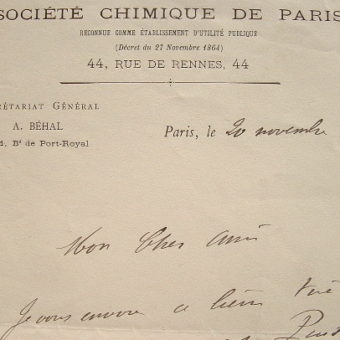 SOCIÉTÉ CHIMIQUE DE PARIS
RECONNUE COMME ÉTABLISSEMENT D'UTILITÉ PUBLIQUE
(Décret du 27 Novembre 1864)
44, RUE DE RENNES, 44
CRÉTARIAT GÉNÉRAL
A. BÉHAL
1, Bd de Port-Royal
Paris, le 20 novembre
Mon Cher Ami
Je vous envoie ce